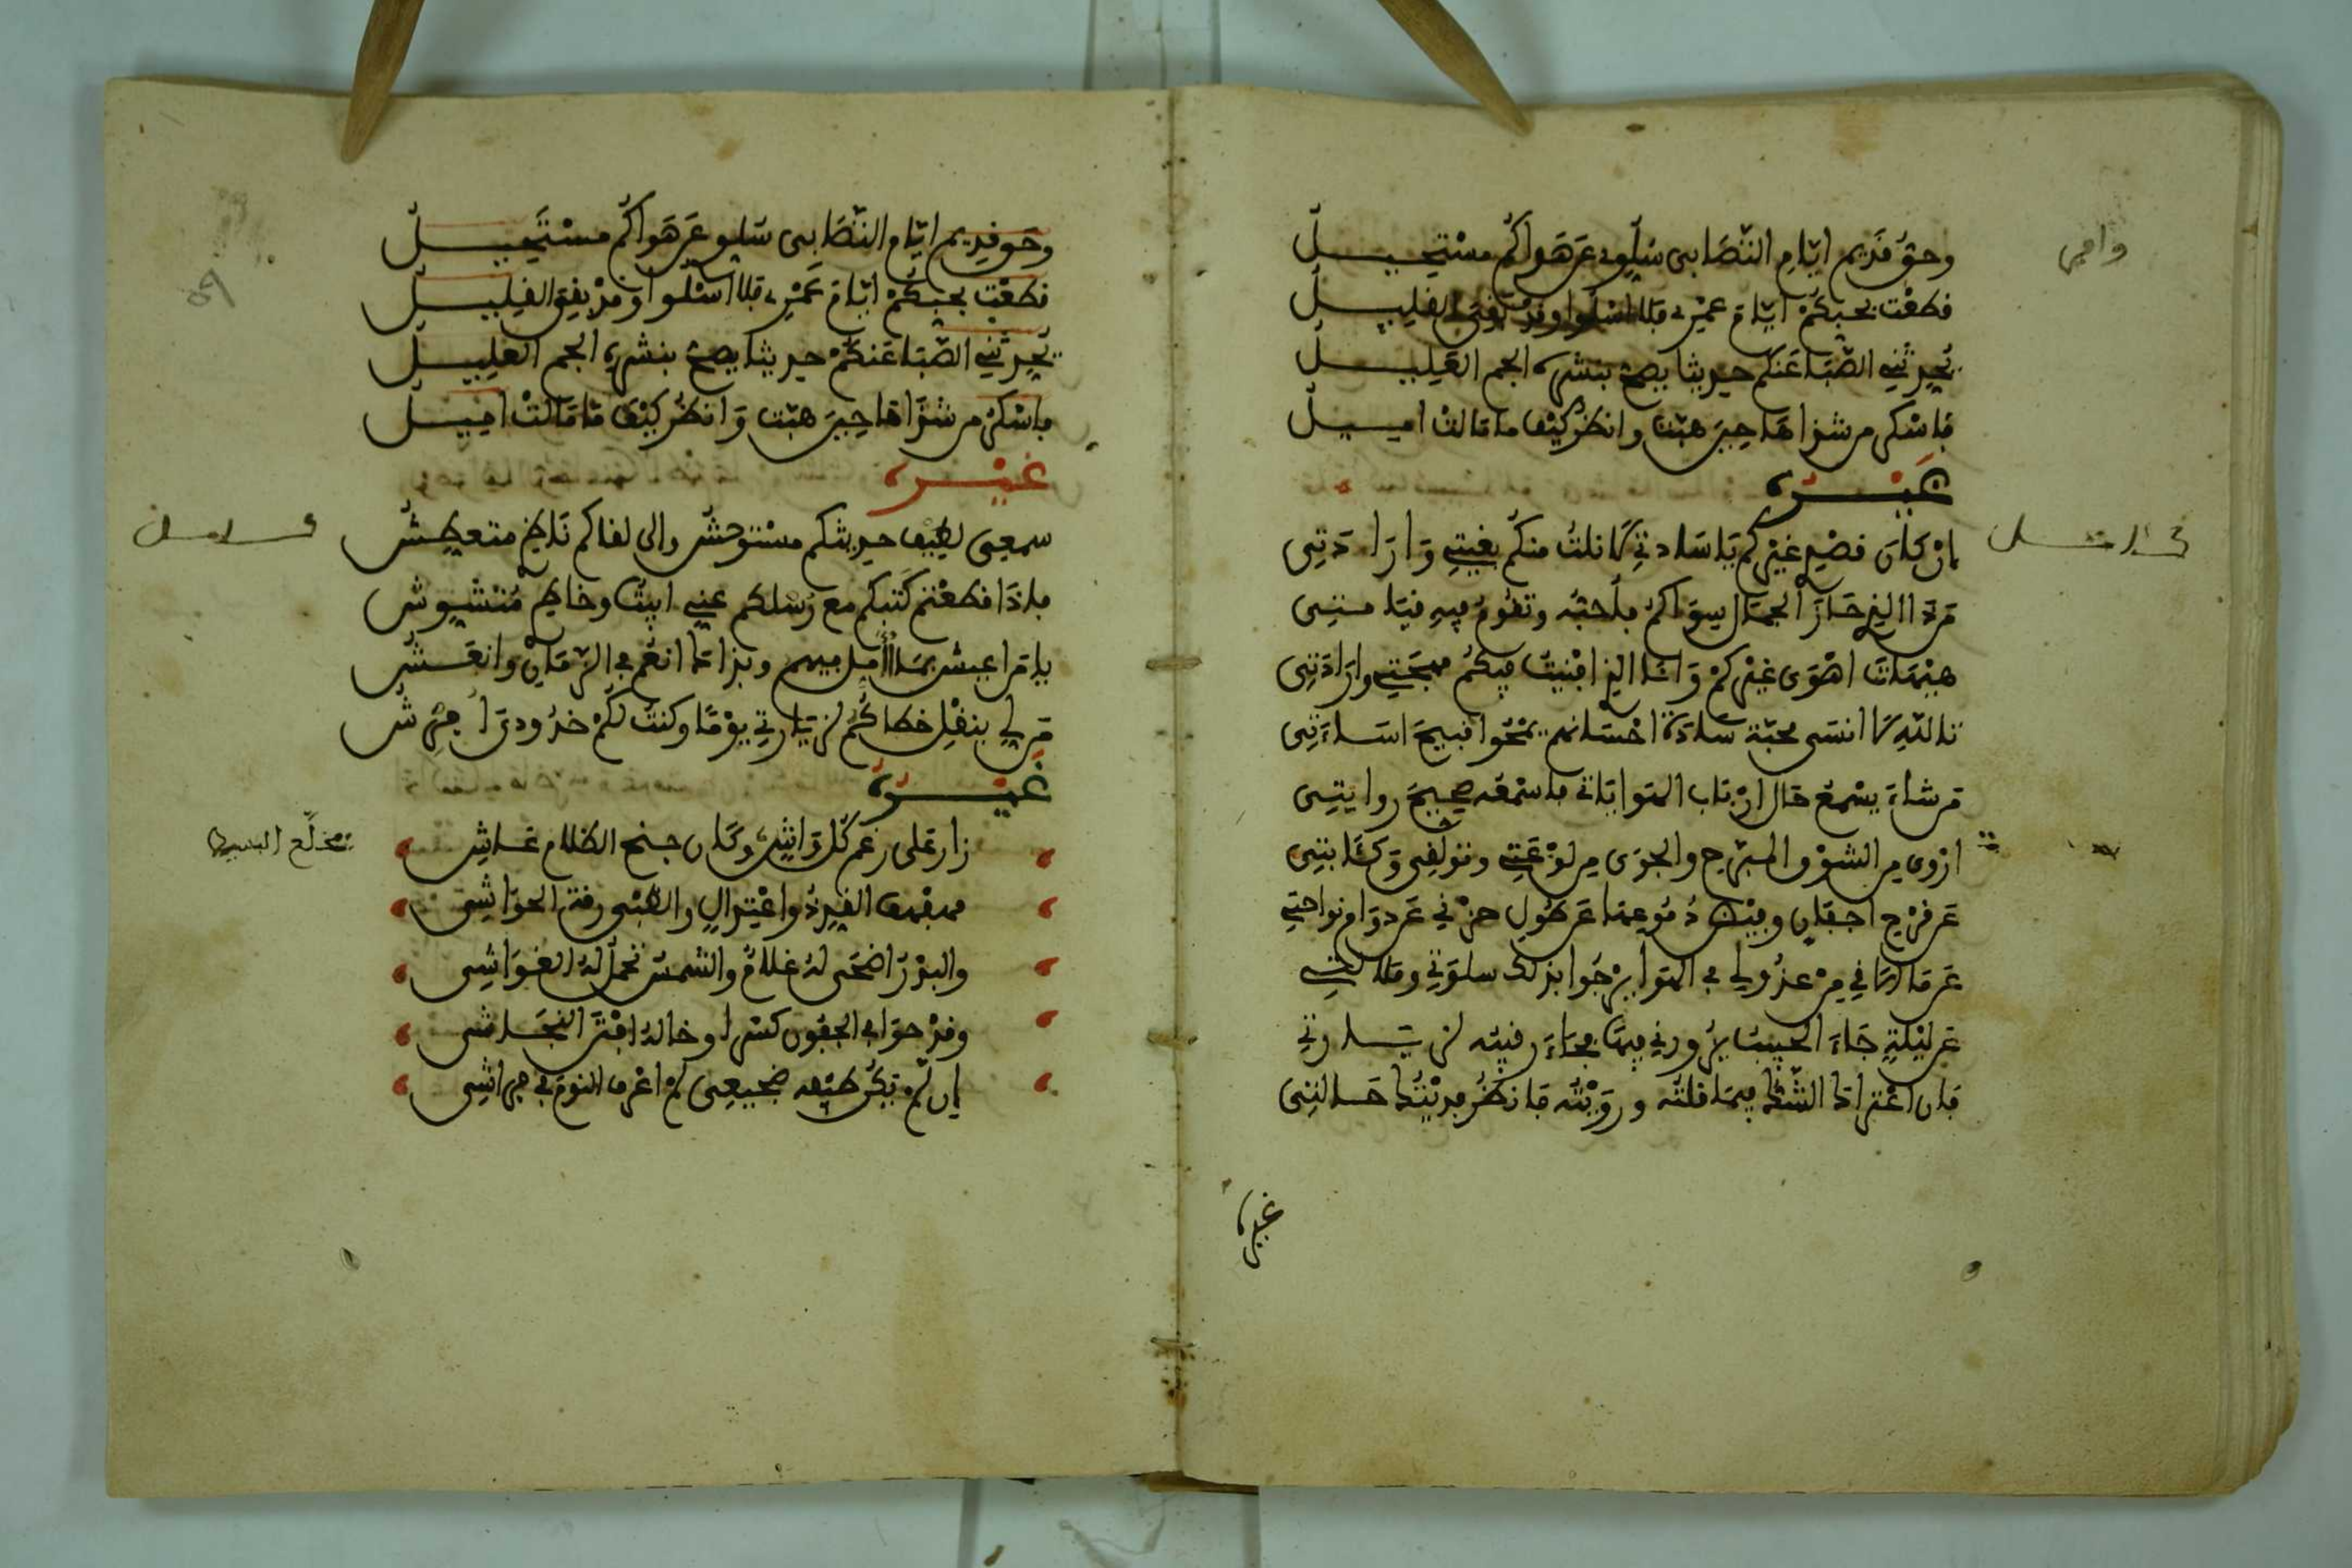 وافر
وحق قديم ايّام التّصَابى سلوى عن هواكم مستحيل
قطعت بحبكم ايام عمرى فلا اسلوا وقد بقى القليل
تحدثنى الصّبا عنكم حديثا يصح بنشره الجسم العليل
فاسكر من شذاها حين هبّت وانظر كيف ما مالت اميل
غيره
كامل
ان كان قصدى غيركم يا سادتى لا نلت منكم بغيتى وارادتى
من ذا الذى حاز الجمال سواكم فاحبّه وتقوم فيه قيامتى
هيهات اهوى غيركم وانا الذى افنيت فيكم مهجتى وارادتى
تالله لا انسى محبّة سادة احسانهم يمحوا قبيح اساءتى
من شاء يسمع حال ارباب الهوا ياتى فاسمعه صحيح روايتى
اروى من الشوق المبرّح والجوى من لوعتى وتولّفى وكئابتى
عن قرح اجفان وبيض دموعها عن طول حزنى عن دوام نواحتى
عن ما الاقى من عذولى فى الهوا يرجوا بذاك سلوتى وملالتى
عن ليلة جاء الحبيب يزورنى فيها بجاء رقيبه لزيارتى
فان اعترا ذا الشك فيما قلته ورويته فانظر فديتك حالتى
غيره
وحق قديم ايّام التّصَابى سلوى عن هواكم مستحيل
قطعت بحبكم ايّام عمرى فلا اسلوا وقد بقى القليل
تحدثنى الصّبا عنكم حديثا يصح بنشره الجسم العليل
فاسكر من شذاها حين هبّت وانظر كيف ما مالت اميل
غيره
كامل
سمعى لطيب حديثكم مستوحش والى لقاكم ناظرى متعطش
فاذا قطعتم كتبكم مع رسلكم عنى ابيت وخاطرى متشوش
يا من اعيش بما اؤمل فيهم وبذا كما انعم فى الزمان وانعش
من لى بنقل خطاكم لزيارتى يوما وكنت لكم خدودى افرش
غيره
مخلّع البسيط
زار على رغم كل واش وكان جنح الظلام غاش
مهفهف القد ذو اعتدال والظبى رق الحواشى
والبدر اضحى له غلام والشمس تحمل له الغواشى
وقد حوا فى الجفون كسرا وخالد افتن النجاشى
ان لم يكن طيفه ضجيعى لم اعرف النوم فى فراشى